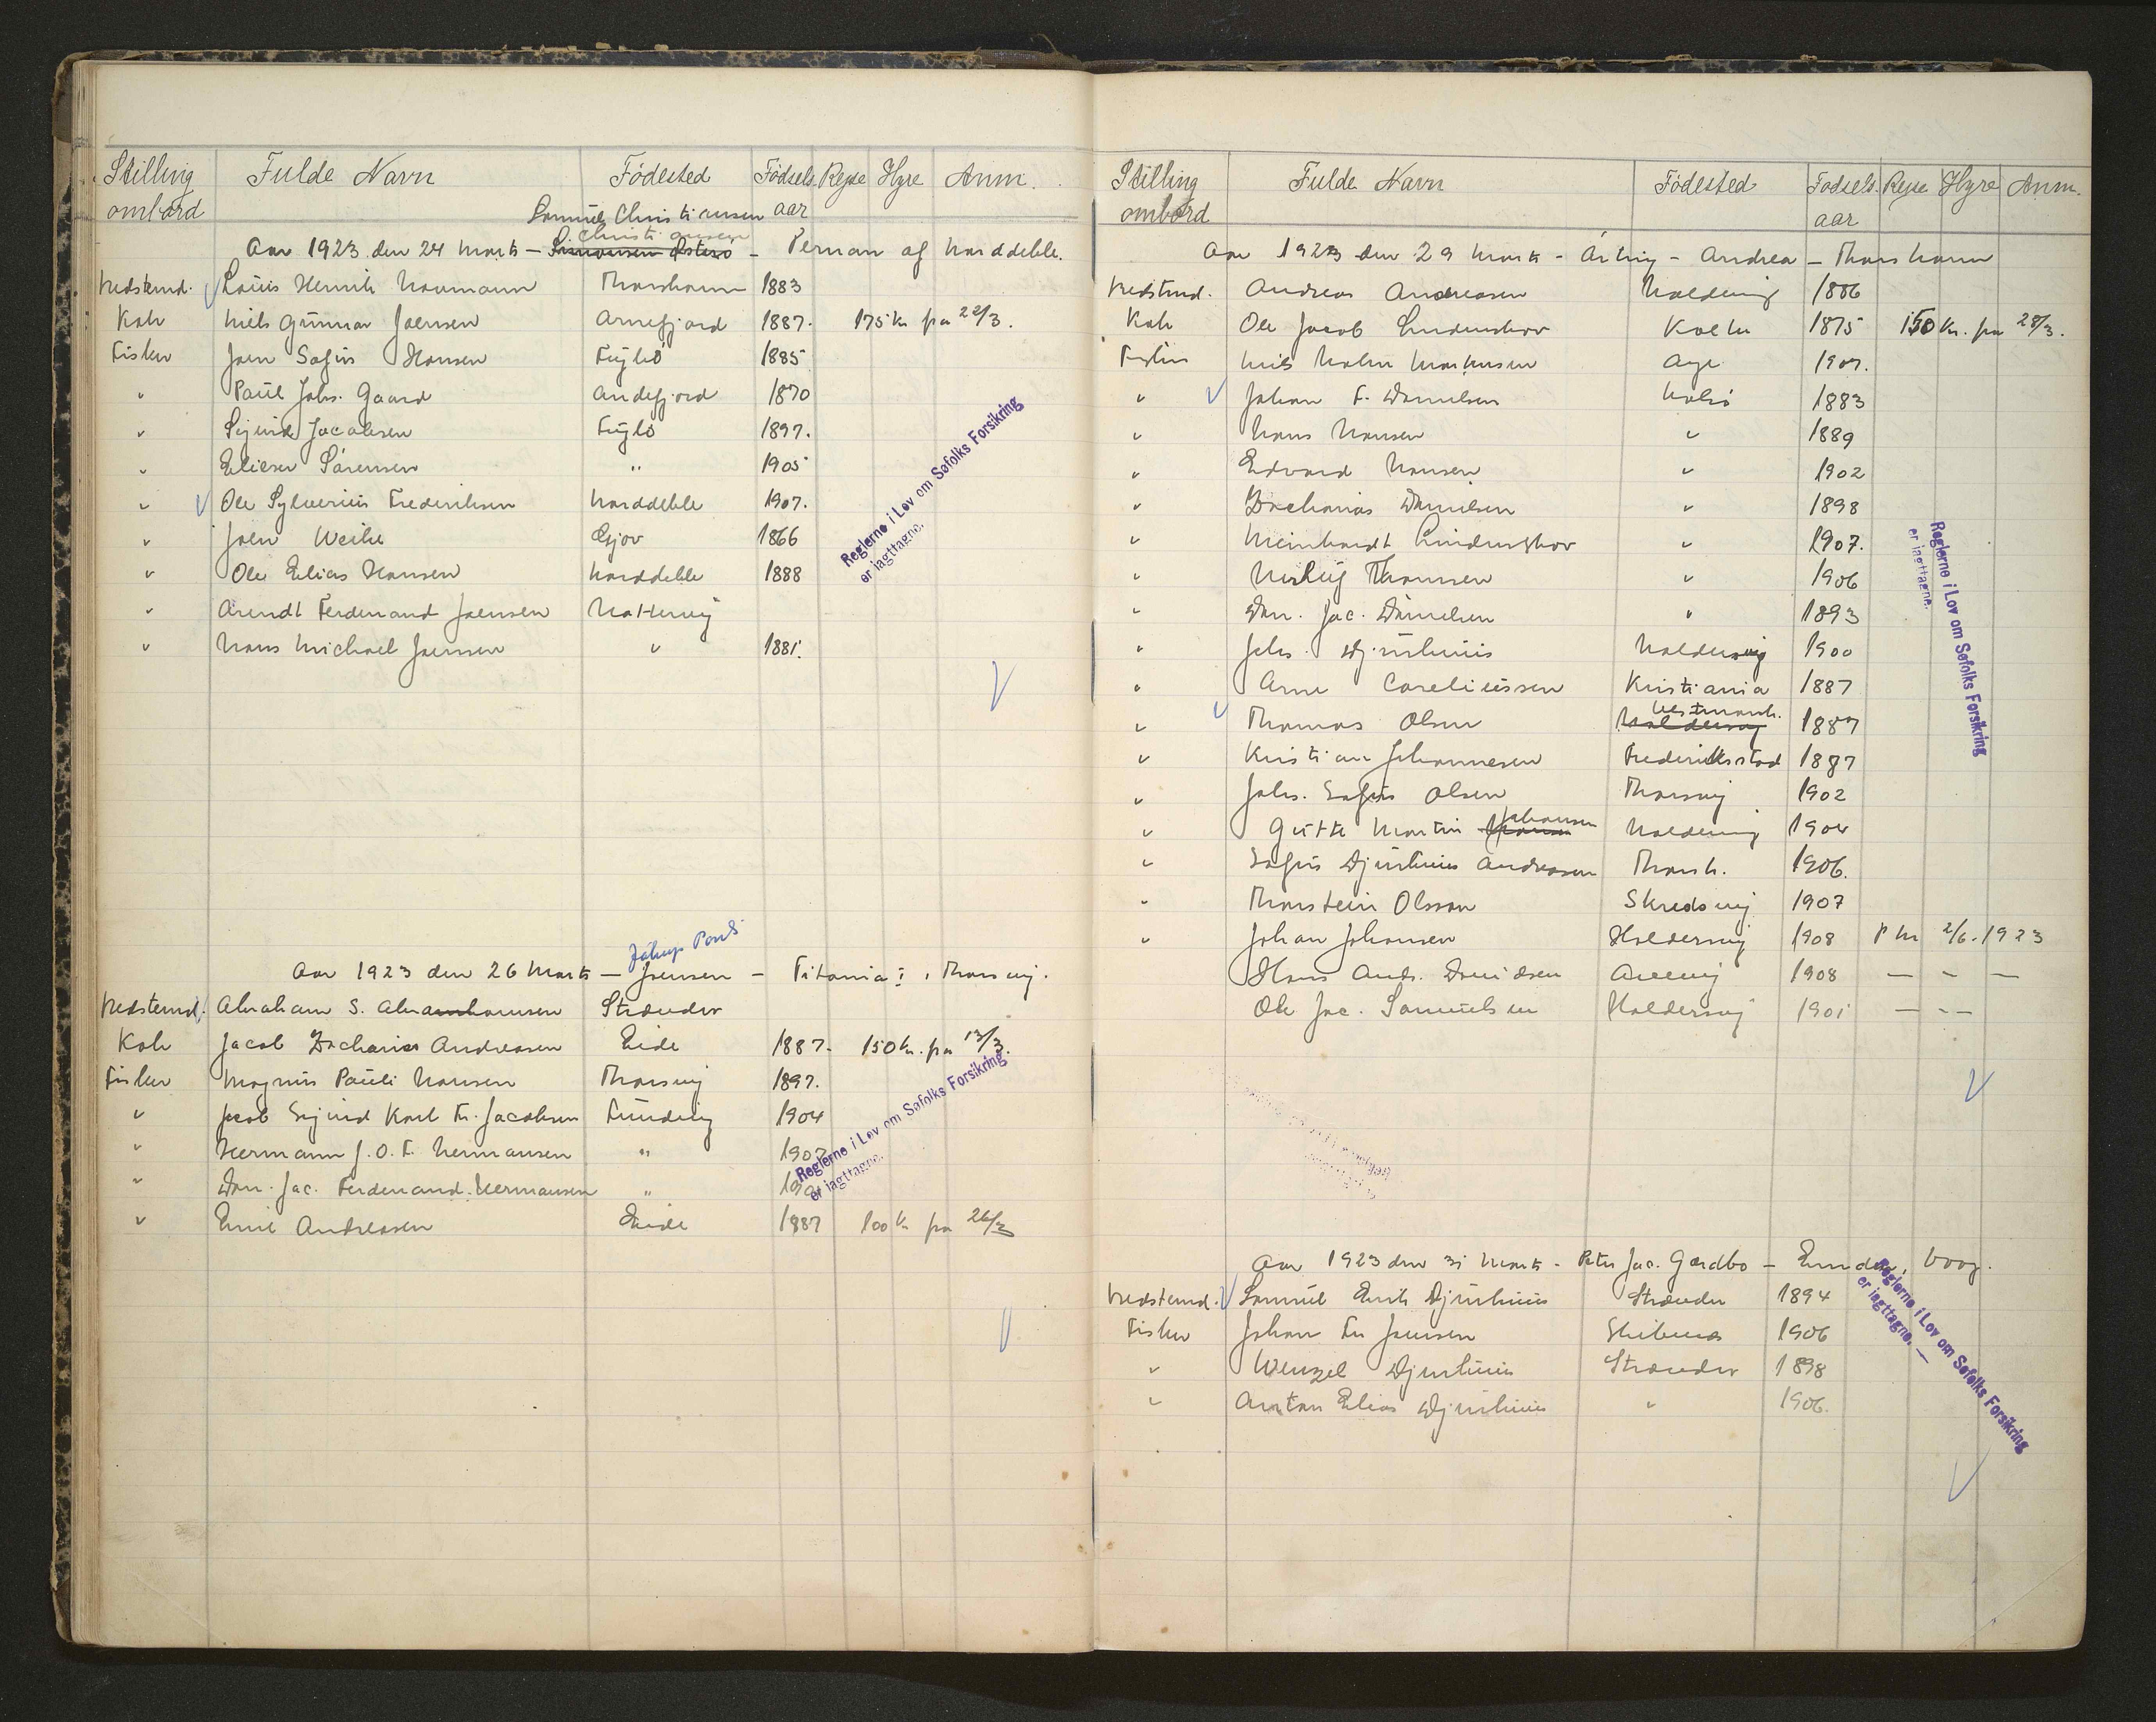 Stilling ombord Fulde Navn Fødested Fødsels aar Rejse Hyre Anm.
Samuel Christiansen
Christiansen
Aar 1923 den 24 Marts - Simonsen Østerö - Pernan af Norddeble.
Bedstemd. Louis Henrik Naumann Thorshavn 1883
Kok Niels Gunnar Joensen Arnefjord 1887. 175 Kr fra 22/3.
Fisker Joen Sofus Hansen Fuglö 1885
" Paul Johs. Gaard Andefjord 1870
" Sigurd Jacobsen Fuglö 1897.
" Elieser Sörensen " 1905
" Ole Sylverius Frederiksen Norddeble 1907.
" Joen Weihe Gjov 1866
" Ole Elias Hansen Norddeble 1888
" Arendt Ferdenand Joensen Nattervig
" Hans Michael Joensen " 1881.
Reglerne i Lov om Søfolks Forsikring
er iagttagne.
Jákup Pauli
Aar 1923 den 26 Marts - Joensen - Titania I, Thorsvig.
Bedstemd. Abraham S. Abrahamsen Strænder
Kok Jacob Zacharias Andreasen Eide 1887. 150 Kr. fra 13/3.
Fisker Magnus Pauli Hansen Thorsvig 1897.
" Jacob Sigurd Karl Fr. Jacobsen Funding 1904
" Hermann J. O. F. Hermansen " 1907
" Dan. Jac. Ferdenand. Hermansen "
" Emil Andreasen Eide 1887 100 Kr fra 26/3
Reglerne i Lov om Søfolks Forsikring
er iagttagne.
Stilling ombord Fulde Navn Fødested Fødsels aar Rejse Hyre Anm.
Aar 1923 den 29 Marts - Árting - Andrea - Thorshavn
Bedstmd. Andreas Andreasen Haldervig 1886
Kok Ole Jacob Lindenskov Kollen 1875 150 Kr. fra 28/3.
Fisker Niels Holm Markusen 1907.
" Johan F. Danielsen Nolsö 1883
" Hans Hansen " 1889
" Edvard Hansen " 1902
" Zacharias Danielsen " 1898
" Meinhardt Lindenskov " 1907.
" Thomsen " 1906
" Dan. Jac. Danielsen " 1893
" Johs. Djurhuus Haldersvig 1900
" Arne Coreliussen Kristiania 1887
" Thomas Olsen Haldersvig Vestmanh. 1887
" Kristian Johannesen Frederiksstad 1887
" Johs. Sofus Olsen Thorsvig 1902
" Gutti Martin Hansen Johansen Haldersvig 1904
" Sofus Djurhuus Andreasen Thorsh. 1906.
" Thorstein Olsson Skredsvig 1907
" Johan Johansen Haldersvig 1908 2/6. 1923
Hans Andr. Davidsen 1908 — - —
Ole Jac. Samuelsen Haldersvig 1901 — - —
Reglerne i Lov om Søfolks Forsikring
er iagttagne.
Aar 1923 den 31 Marts - Peter Jac. Gardbo - Vaag.
Bedstemd. Samuel Erik Djurhuus Strænder 1894
Fisker Johan Fr Joensen Skibenæs 1906
" Wenzel Djurhuus Strænder 1898
" Anton Elias Djurhuus " 1906.
Reglerne i Lov om Søfolks Forsikring
er iagttagne. —